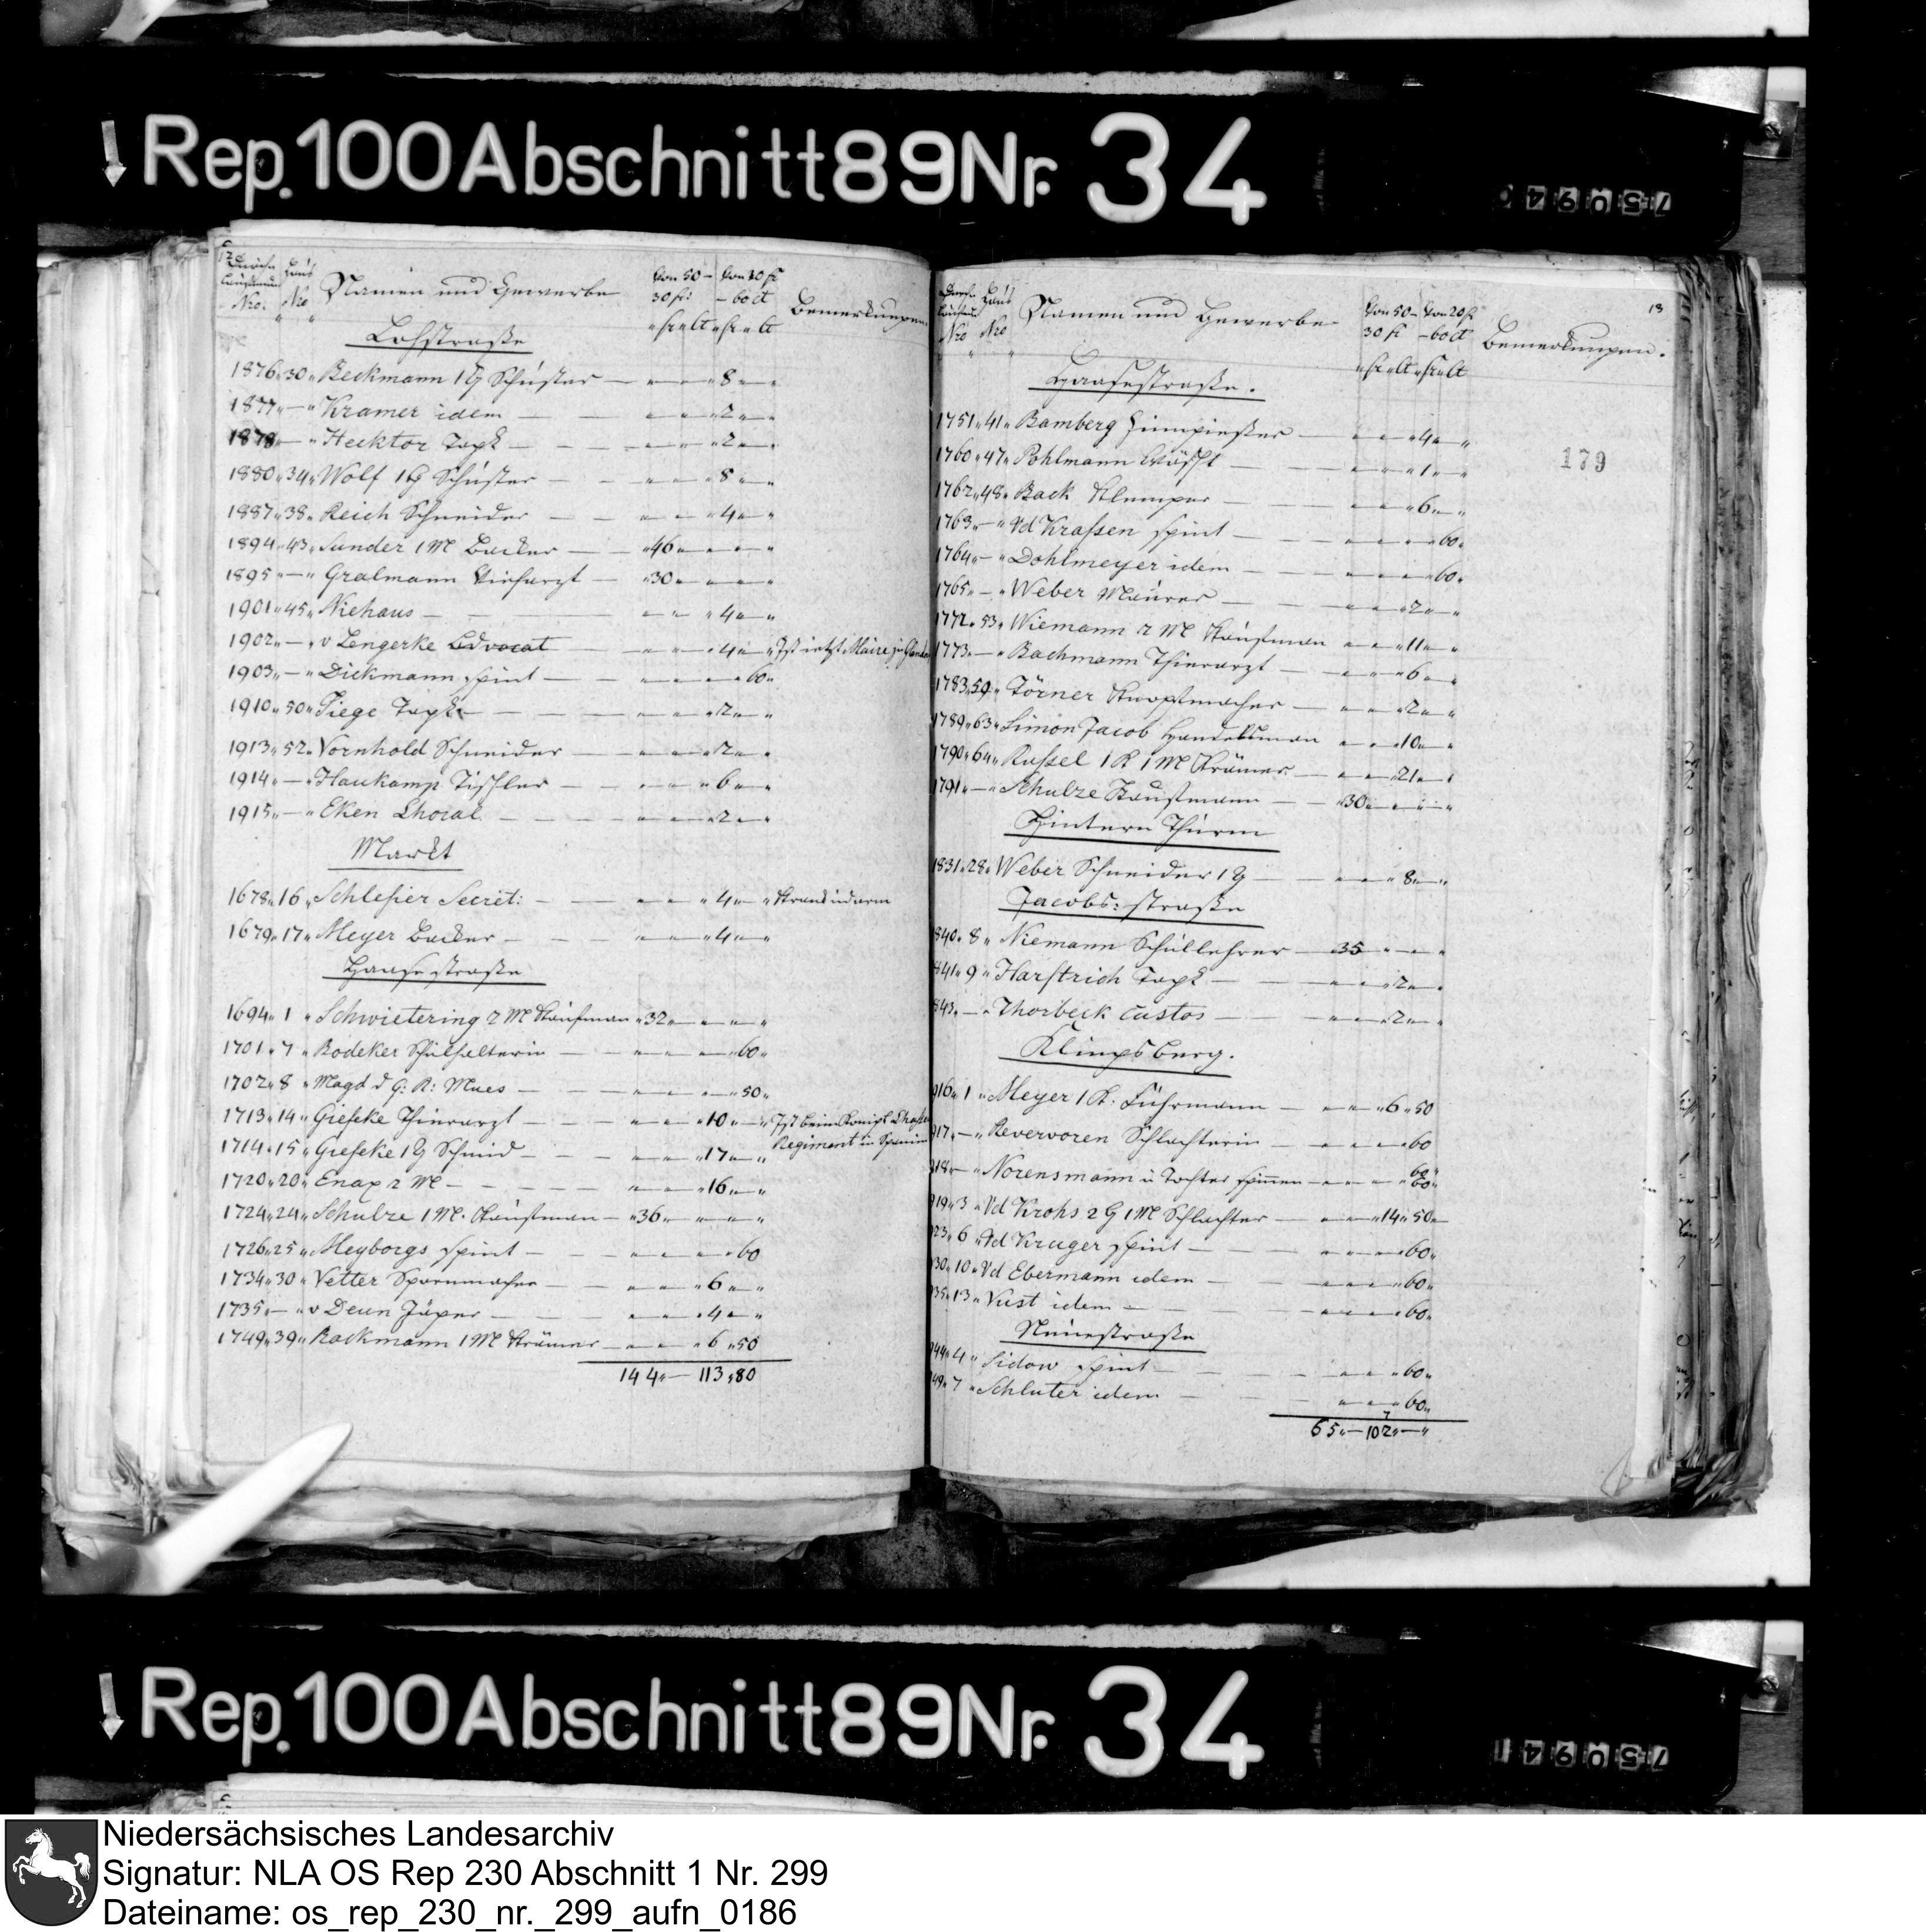 Rep. 100 Abschnitt 89 Nr. 34
Nro. Nro Namen und Gewerbe von 50- von 20 fr Bemerkungen.
30 fr: - 60 ct
Lohstraße
1876 „ 30 „ Beckmann 1 G Schüster — 8
1877 „ — „ Kramer idem — 2
1878 „ — „ Hecktor — 2
1880 „ 34 „ Wolf 1 G Schüster — 8
1887 „ 38 „ Reich Schneider — 4
1894 „ 43 „ Sander 1 M Becker — 46
1895 „ — „ Gralmann Viehartzt — 30
1901 „ 45 „ Niehaus — 4
1902 „ — „ v Lengerke Advocat — 4 „ Ist ietzt Maire zu
1903 „ — „ Dickmann spint — 60
1910 „ 50 „ Tiege — 2
1913 „ 52 „ Vornhold Schneider — 2
1914 „ — „ Haukamp Tischler — 6
1915 „ — „ Eken Choral — 2
Markt
1678 „ 16 „ Schlesier Secret: — 4
1679 „ 17 „ Meyer Becker — 4
Haase straße
1694 „ 1 „ Schwietering 2 M Kaufman „ 32
1701 „ 7 „ Rodeker Schulhalterin — 60
1702 „ 8 „ Magd d G: R: Mues — 50
1713 „ 14 „ Gieseke Thierarzt — 10 „ Ist beim Königl.
1714 „ 15 „ Gieseke 1 G Schmid — 17 Regiment in Spanien
1720 „ 20 „ Enax 2 M — 16
1724 „ 24 „ Schulze 1 M. Kaufman — 36
1726 „ 25 „ Meyborgs spint — 60
1734 „ 30 „ Vetter Spornmacher — 6
1735 „ — „ v Deun Jäger — 4
1749 „ 39 „ Rackmann 1 M Krämer — 6 „ 50
144 „ — 113 „ 80
13
Nro Nro Namen und Gewerbe von 50- von 20 fr Bemerkungen.
30 fr - 60 ct
Haasestraße.
179
1751 „ 41 „ Bamberg Zinngiesser — 4
1760 „ 47 „ Pohlmann — 1
1762 „ 48 „ Back Klemper — 6
1763 „ — „ Vd Krassen spint — 60
1764 „ — „ Dohlmeyer idem — 60
1765 „ — „ Weber Maürer — 2
1772 „ 53 „ Wiemann 2 M Kaufman — 11
1773 „ — „ Bachmann Thierarzt — 6
1783 „ 59 „ Törner Knopfmacher — 2
1789 „ 63 „ Simon Jacob Handelsman — 10
1790 „ 64 „ Russel 1 K 1 M Krämer — 21
1791 „ — „ Schulze Kaufmann — 30
Hintern Thurm
1831 „ 28 „ Weber Schneider 1 G — 8
Jacobs: straße
840 „ 8 „ Niemann Schullehrer — 35
841 „ 9 „ Harstrich — 2
843 „ — „ Thorbeck Custos — 2
Klingsberg.
916 „ 1 „ Meyer 1 K. Fuhrmann — 6 „ 50
917 „ — „ Revervoren Schlachterin — 60
918 „ — „ Norensmann ü Tochter spinnen — 60
60
919 „ 3 „ Vd Krohs 2 G 1 M Schlachter — 14 „ 50
23 „ 6 „ Vd Kruger spint — 60
30 „ 10 „ Vd Ebermann idem — 60
35 „ 13 „ Vust idem — 60
Neuestraße
944 „ 4 „ Sidow spint — 60
949 „ 7 „ Schluter idem — 60
65 „ — 102 „ —
Rep. 100 Abschnitt 89 Nr. 34
Niedersächsisches Landesarchiv
Signatur: NLA OS Rep 230 Abschnitt 1 Nr. 299
Dateiname: os_rep_230_nr._299_aufn_0186